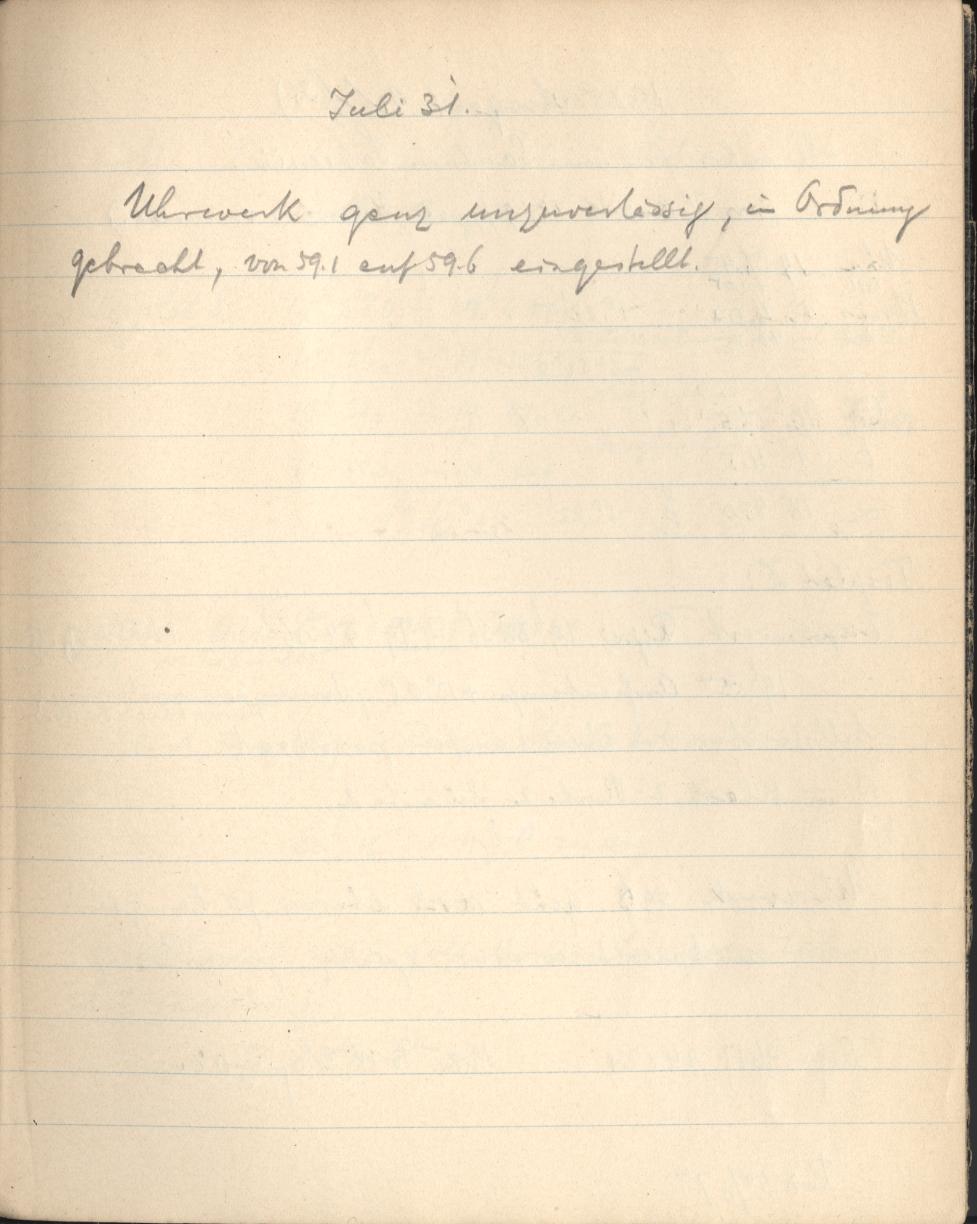 Juli 31.
Uhrwerk ganz unzuverlässig, in Ordnung
gebracht, von 59.1 auf 59.6 eingestellt.